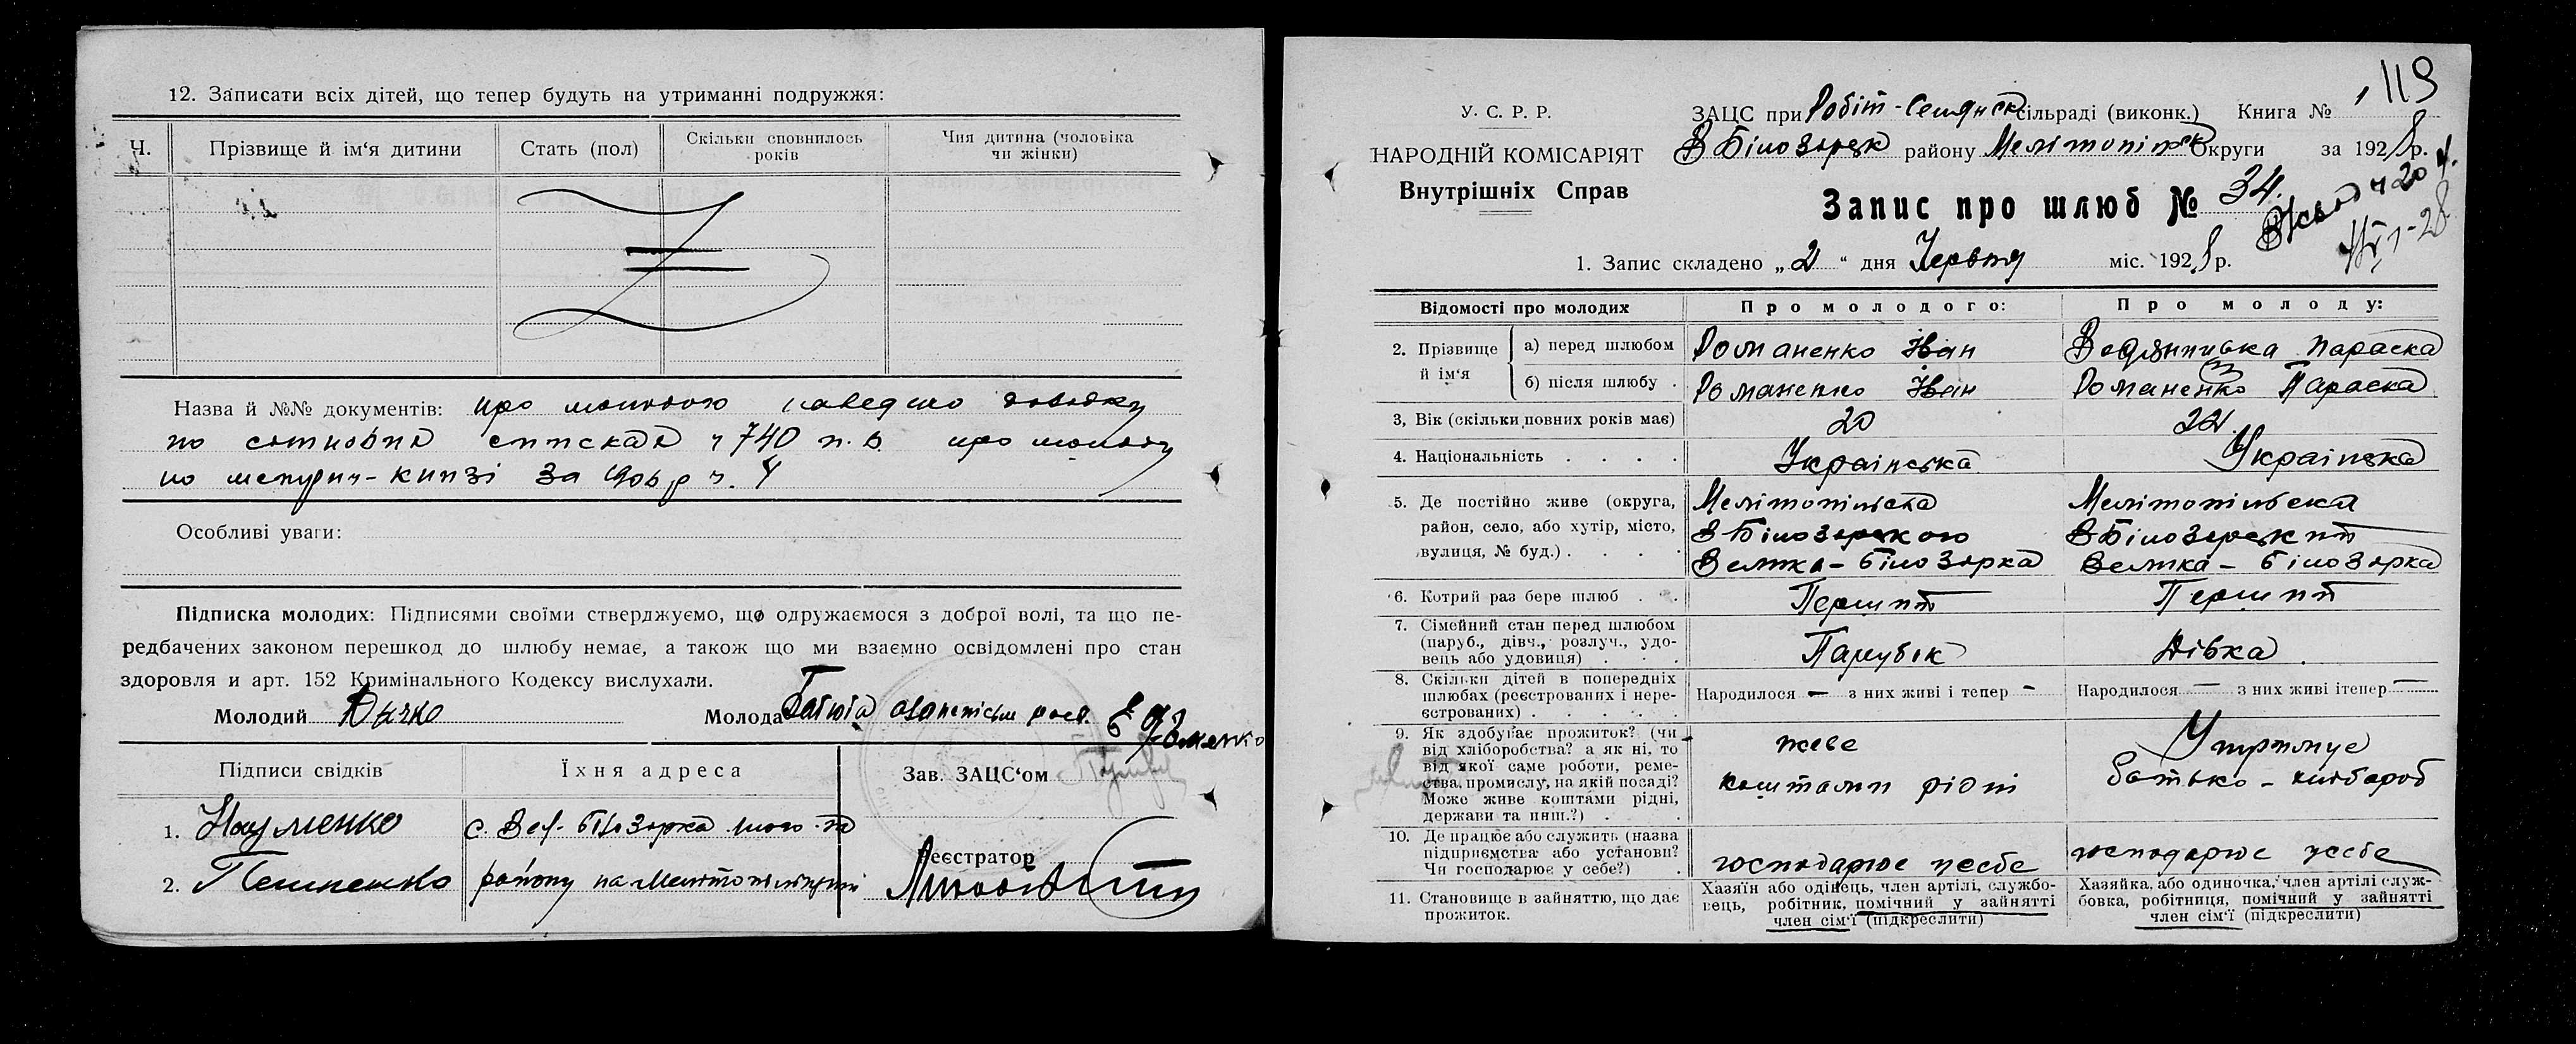 12. Записати всіх дітей, що тепер будуть на утриманні подружжя:
Ч.
Прізвище й ім'я дитини
Стать (пол)
Скільки сповнилось років
Чия дитина (чоловіка чи жінки)
Назва й №№ документів: про
по 740 про
по книзі за 1906 р ч. 4
Особливі уваги:
Підписка молодих: Підписями своїми стверджуємо, що одружаємося з доброї волі, та що пе-
редбачених законом перешкод до шлюбу немає, а також що ми взаємно освідомлені про стан
здоров'я и арт. 152 Кримінального Кодексу вислухали.
Молодий
Молода
Підписи свідків
Їхня адреса
Зав. ЗАЦС'ом
1. Науменко с. Вел-Білозорка
2. району на
Реєстратор
119
У. С. Р. Р.
НАРОДНІЙ КОМІСАРІЯТ
Внутрішніх Справ
ЗАЦС при Робіт-Селянск сільраді (виконк.) Книга №
В Білозорск району Мелітопільск Округи за 1928 р.
Запис про шлюб № 34.
1. Запис складено „2" дня Червня міс. 1928 р.
Відомості про молодих
Про молодого:
Про молоду:
2. Прізвище й ім'я
а) перед шлюбом
Романенко Іван
Параска
б) після шлюбу
Романенко Іван
Романенко Параска
3, Вік (скільки повних років має)
20
22
4. Національність
Українська
Українська
5. Де постійно живе (округа, район, село, або хутір, місто, вулиця, № буд.)
Мелітопільска
В Білозорского
Велика-Білозорка
Мелітопільска
В Білозорский
Велика-Білозорка
6. Котрий раз бере шлюб
Перший
Перший
7. Сімейний стан перед шлюбом (паруб., дівч., розлуч., удовець або удовиця)
Парубок
Дівка
8. Скільки дітей в попередніх шлюбах (реєстрованих і нереєстрованих)
Народилося — з них живі і тепер -
Народилося — з них живі ітепер —
9. Як здобуває прожиток? (чи від хліборобства? а як ні, то від якої саме роботи, ремества, промислу, на якій посаді? Може живе коштами рідні, держави та инш.?)
живе
коштами рідні
Утримує
батько - хлібороб
10. Де працює або служить (назва підприємства або установи? Чи господарює у себе?)
господарює у себе
господарює у себе
11. Становище в зайняттю, що дає прожиток.
Хазяїн або одінець, член артілі, службовець, робітник, помічний у зайнятті член сім'ї (підкреслити)
Хазяйка, або одиночка, член артілі службовка, робітниця, помічний у зайнятті член сім'ї (підкреслити)